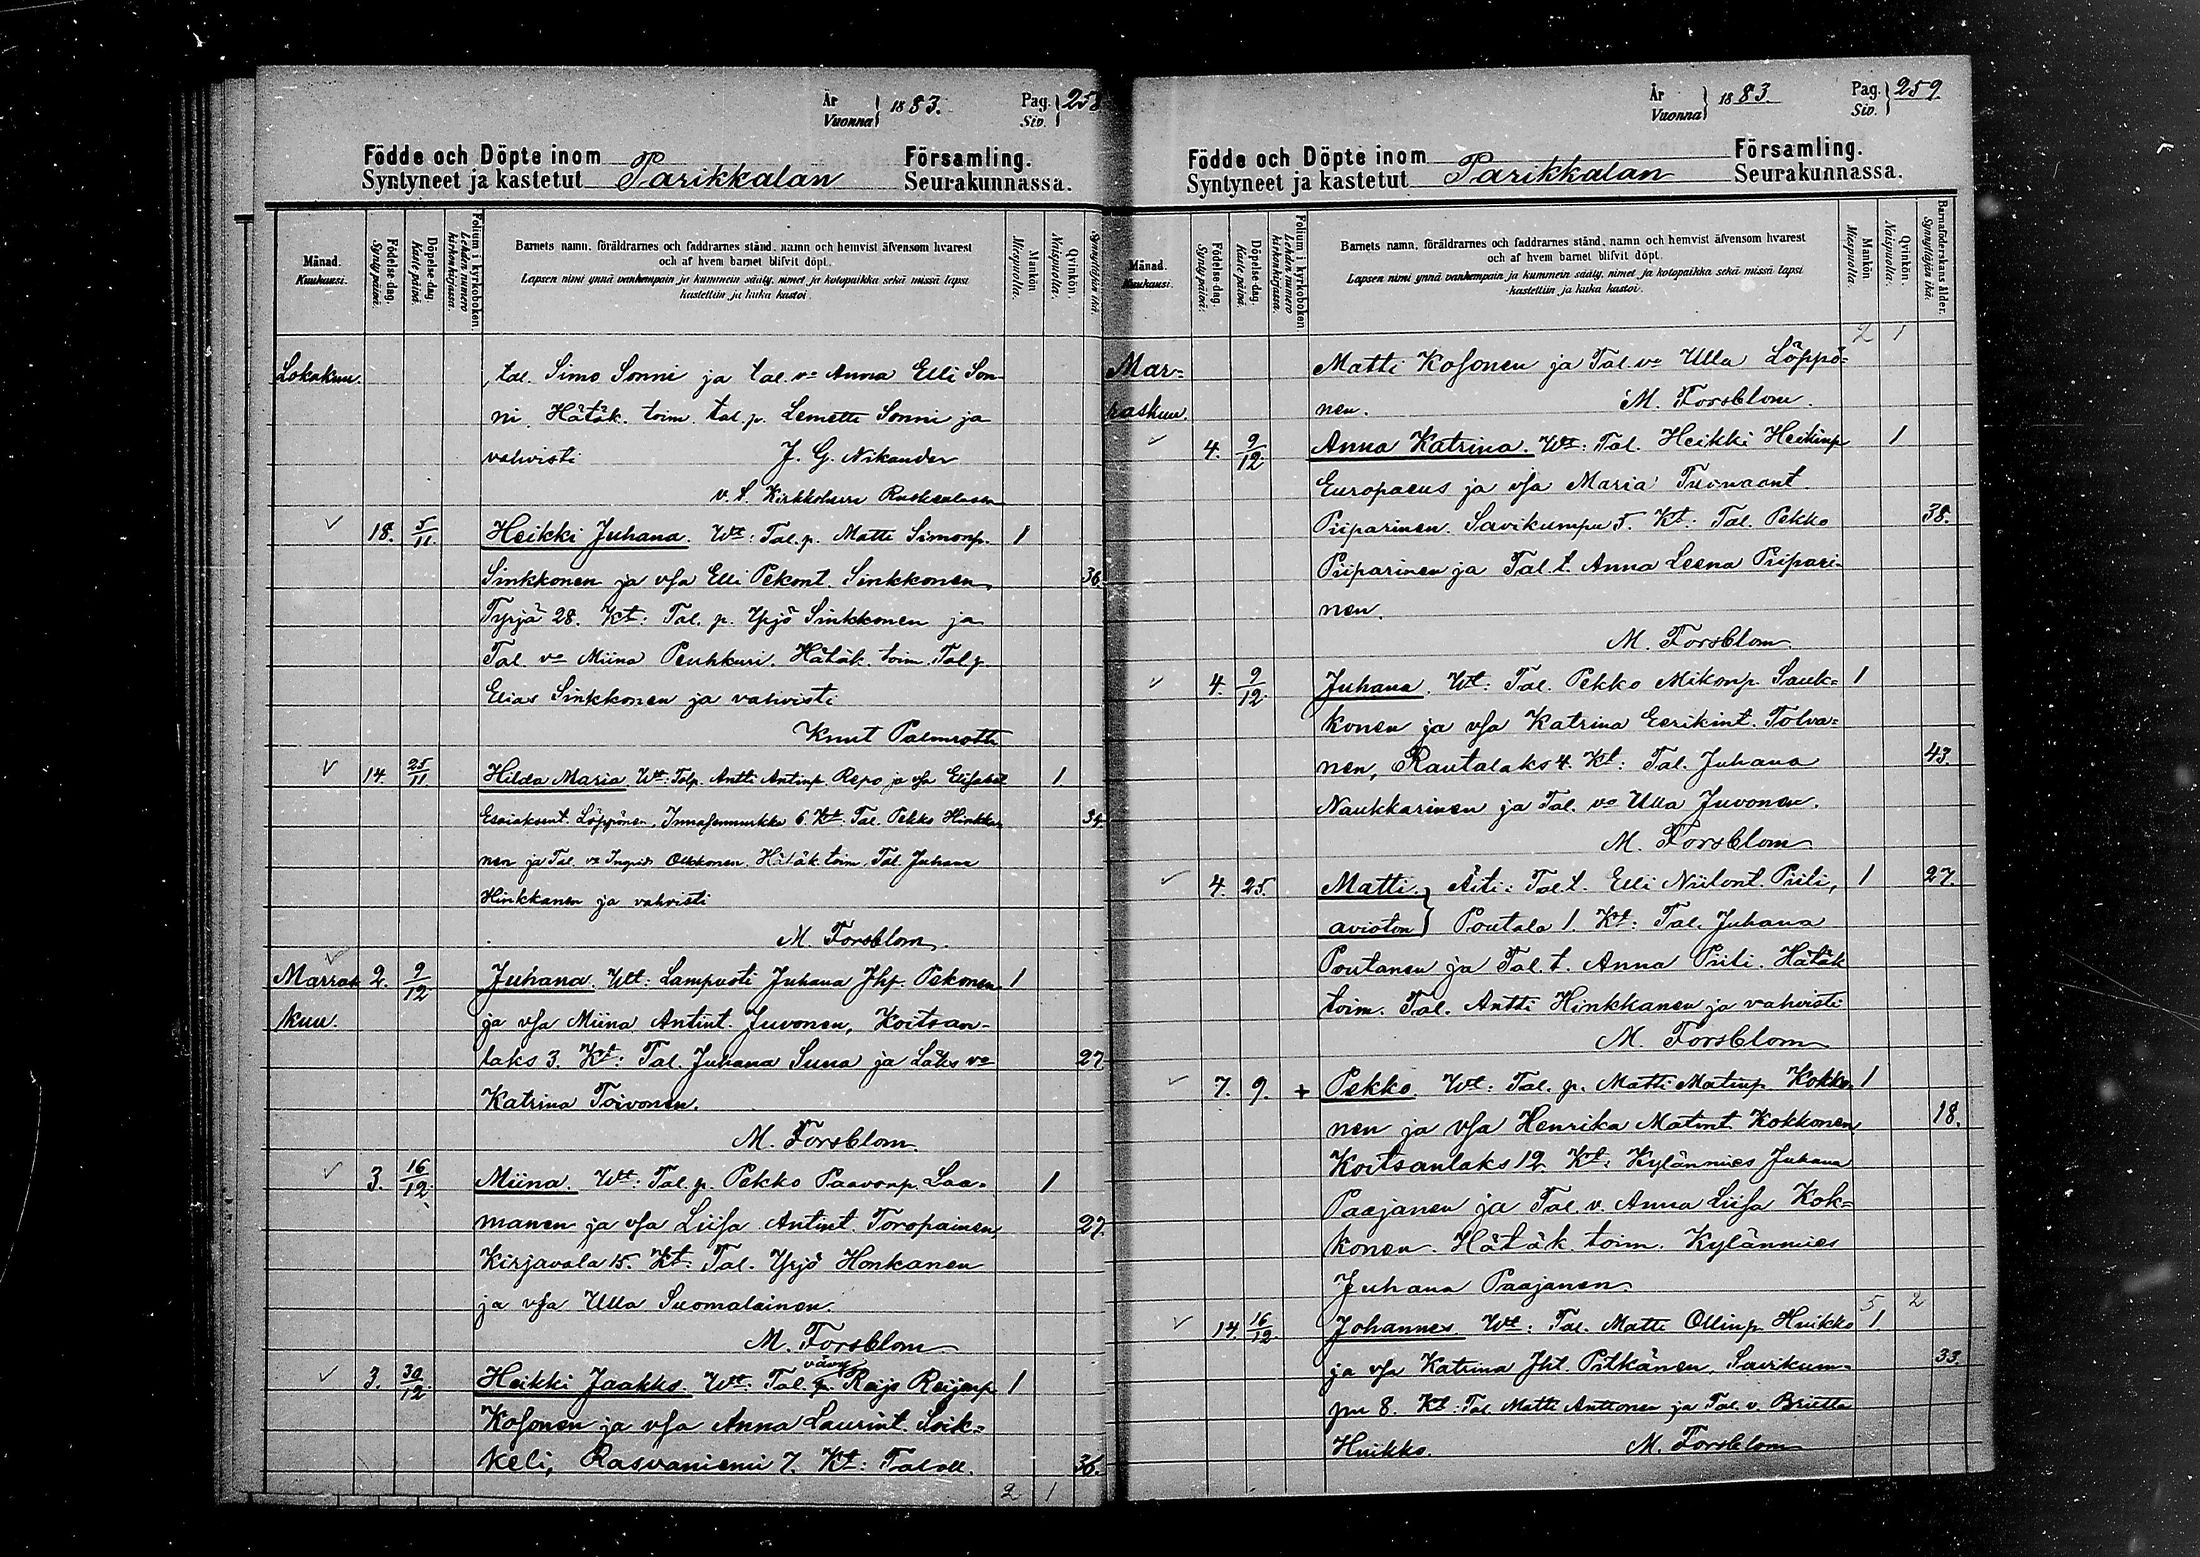 År
Vuonna } 1883.
Pag.
Siv. } 258
Födde och Döpte inom
Syntyneet ja kastetut Parikkalan
Församling.
Seurakunnassa.
Månad.
Kuukausi.
Födelse-dag.
Syntypäivä.
Döpelse-dag.
Kaste päivä.
Folium i kyrkoboken.
Lehden numero
kirkonkirjassa.
Barnets namn, föräldrarnes och faddrarnes stånd, namn och hemvist äfvensom hvarest
och af hvem barnet blifvit döpt.
Lapsen nimi ynnä vanhempain ja kummein sääty, nimet ja kotopaikka sekä missä lapsi
kastettiin ja kuka kastoi.
Mankön.
Miespuolia.
Qvinkön.
Naispuolia.
Synnyttäjän ikä.
Lokakuu. tal. Simo Sonni ja tal. vo Anna Elli Son-
ni. Hätäk. toim. tal. p. Lemetti Sonni ja
vahvisti J. G. Nikander
v. t. Kirkkoherra Ruskealasen
18. 5/11. Heikki Juhana. Wt: Tal. p. Matti Simonp. 1
Sinkkonen ja vsa Elli Pekont. Sinkkonen, 36.
Tyrjä 28. Kt: Tal. p. Yrjö Sinkkonen ja
Tal. vo Miina Peuhkuri. Hätäk. toim. Tal. p.
Elias Sinkkonen ja vahvisti
Knut Palmroth
14. 25/11. Hilda Maria. Wt: Tal p. Antti Antinp. Repo ja vsa Elisabet 1.
Esaiaksent. Löppönen, Innasenmurkka 6. Kt: Tal. Pekko Hinkka- 34.
nen ja Tal. vo Ingrid Olkkonen. Hätäk. toim. Tal. Juhana
Hinkkanen ja vahvisti
M. Forsblom.
Marras 2. 9/12 Juhana. Wt: Lampuoti Juhana Jhp. Pekonen 1
kuu. ja vsa Miina Antint. Juvonen, Koitsan-
laks 3. Kt: Tal. Juhana Suna ja Läks vo 27.
Katrina Toivonen.
M. Forsblom.
3. 16/12. Miina. Wt: Tal. p. Pekko Paavonp. Laa- 1
manen ja vsa Liisa Antint. Toropainen, 27.
Kirjavala 15. Kt: Tal. Yrjö Honkanen
ja vsa Ulla Suomalainen.
M. Forsblom
3. 30/12. Heikki Jaakko. Wt: Tal. vävy Reijo Reijonp. 1
Kosonen ja vsa Anna Laurint. Soik-
keli, Rasvaniemi 7. Kt: Tal. 36.
2 1
År
Vuonna } 1883.
Pag.
Siv. } 259
Födde och Döpte inom
Syntyneet ja kastetut Parikkalan
Församling.
Seurakunnassa.
Månad.
Kuukausi.
Födelse-dag.
Syntypäivä.
Döpelse-dag.
Kaste päivä.
Folium i kyrkoboken.
Lehden numero
kirkonkirjassa.
Barnets namn, föräldrarnes och faddrarnes stånd, namn och hemvist äfvensom hvarest
och af hvem barnet blifvit döpt.
Lapsen nimi ynnä vanhempain ja kummein sääty, nimet ja kotopaikka sekä missä lapsi
kastettiin ja kuka kastoi.
Mankön.
Miespuolia.
Qvinkön.
Naispuolia.
Barnaföderskans ålder.
Synnyttäjän ikä.
2 1
Mar- Matti Kosonen ja Tal. vo Ulla Löppö-
raskuu. nen. M. Forsblom.
4. 9/12 Anna Katrina. Wt: Tal. Heikki Heikinp. 1
Europaeus ja vsa Maria Tuomaant.
Piiparinen. Savikumpu 5. Kt: Tal. Pekko 38.
Piiparinen ja Tal. t. Anna Leena Piipari-
nen.
M. Forsblom
4. 9/12. Juhana. Wt: Tal. Pekko Mikonp. Sauk- 1
konen ja vsa Katrina Eerikint. Tolva-
nen, Rautalaks 4. Kt: Tal. Juhana 43.
Naukkarinen ja Tal. vo Ulla Juvonen.
M. Forsblom
4. 25. Matti. } Äiti: Tal. t. Elli Niilont. Piili, 1 27.
avioton } Poutala 1. Kt: Tal. Juhana
Poutanen ja Tal. t. Anna Piili. Hätäk
toim. Tal. Antti Hinkkanen ja vahvisti
M. Forsblom
7. 9. + Pekko. Wt: Tal. p. Matti Matinp. Kokko- 1
nen ja vsa Henrika Matint. Kokkonen, 18.
Koitsanlaks 12. Kt: Kylänmies Juhana
Paajanen ja Tal. v. Anna Liisa Kok-
konen. Hätäk. toim. Kylänmies
Juhana Paajanen.
5 2
14. 16/12. Johannes. Wt: Tal. Matti Ollinp. Huikko 1.
ja vsa Katrina Jht. Pitkänen, Savikum- 33.
pu 8. Kt: Tal. Matti Anttonen ja Tal. v. Briitta
Huikko. M. Forsblom